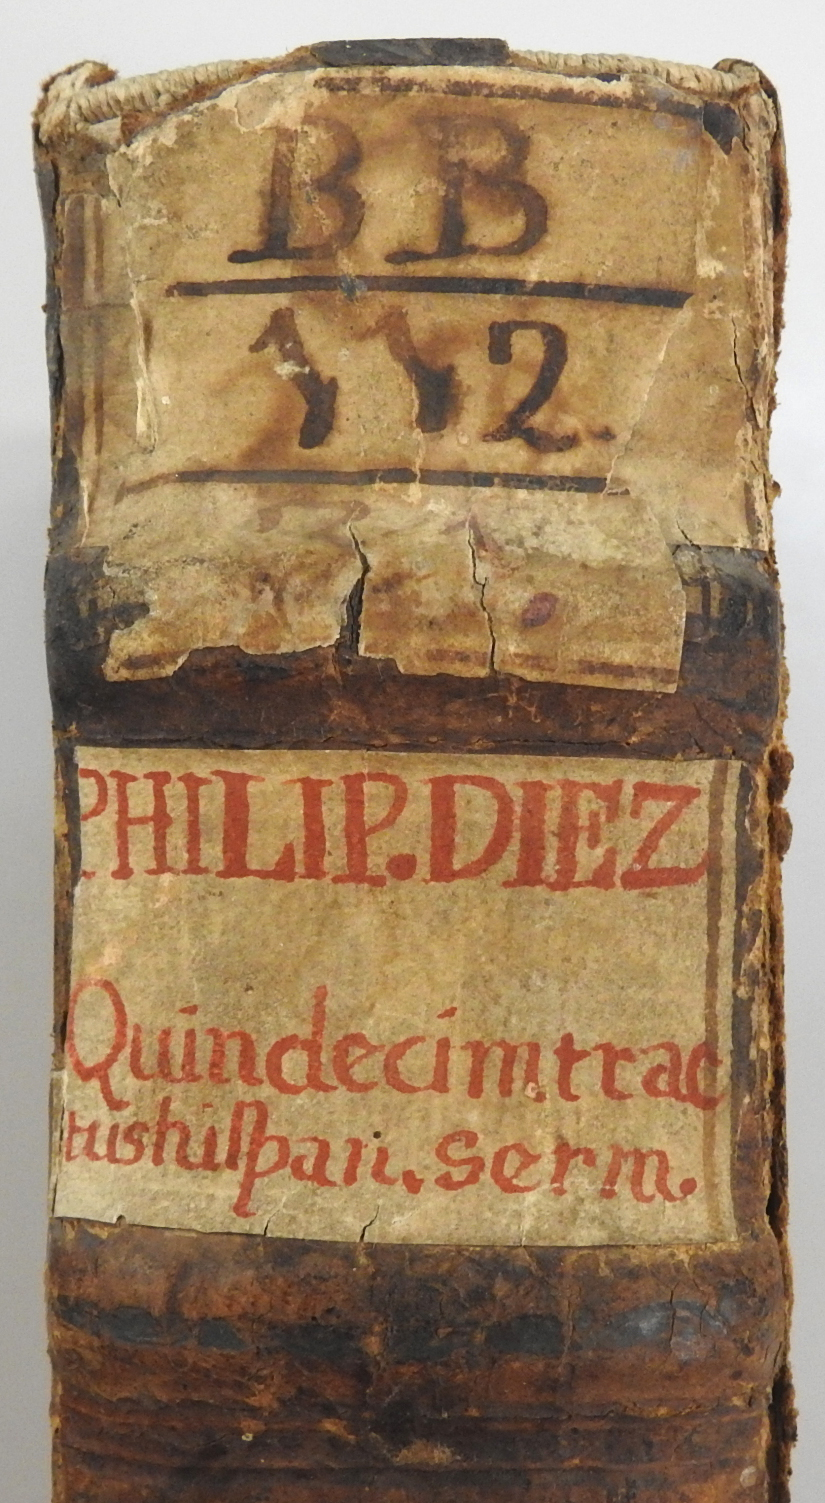 BB
112.
PHILIP. DIEZ
Quindecim trac
tus hiſpan. serm.